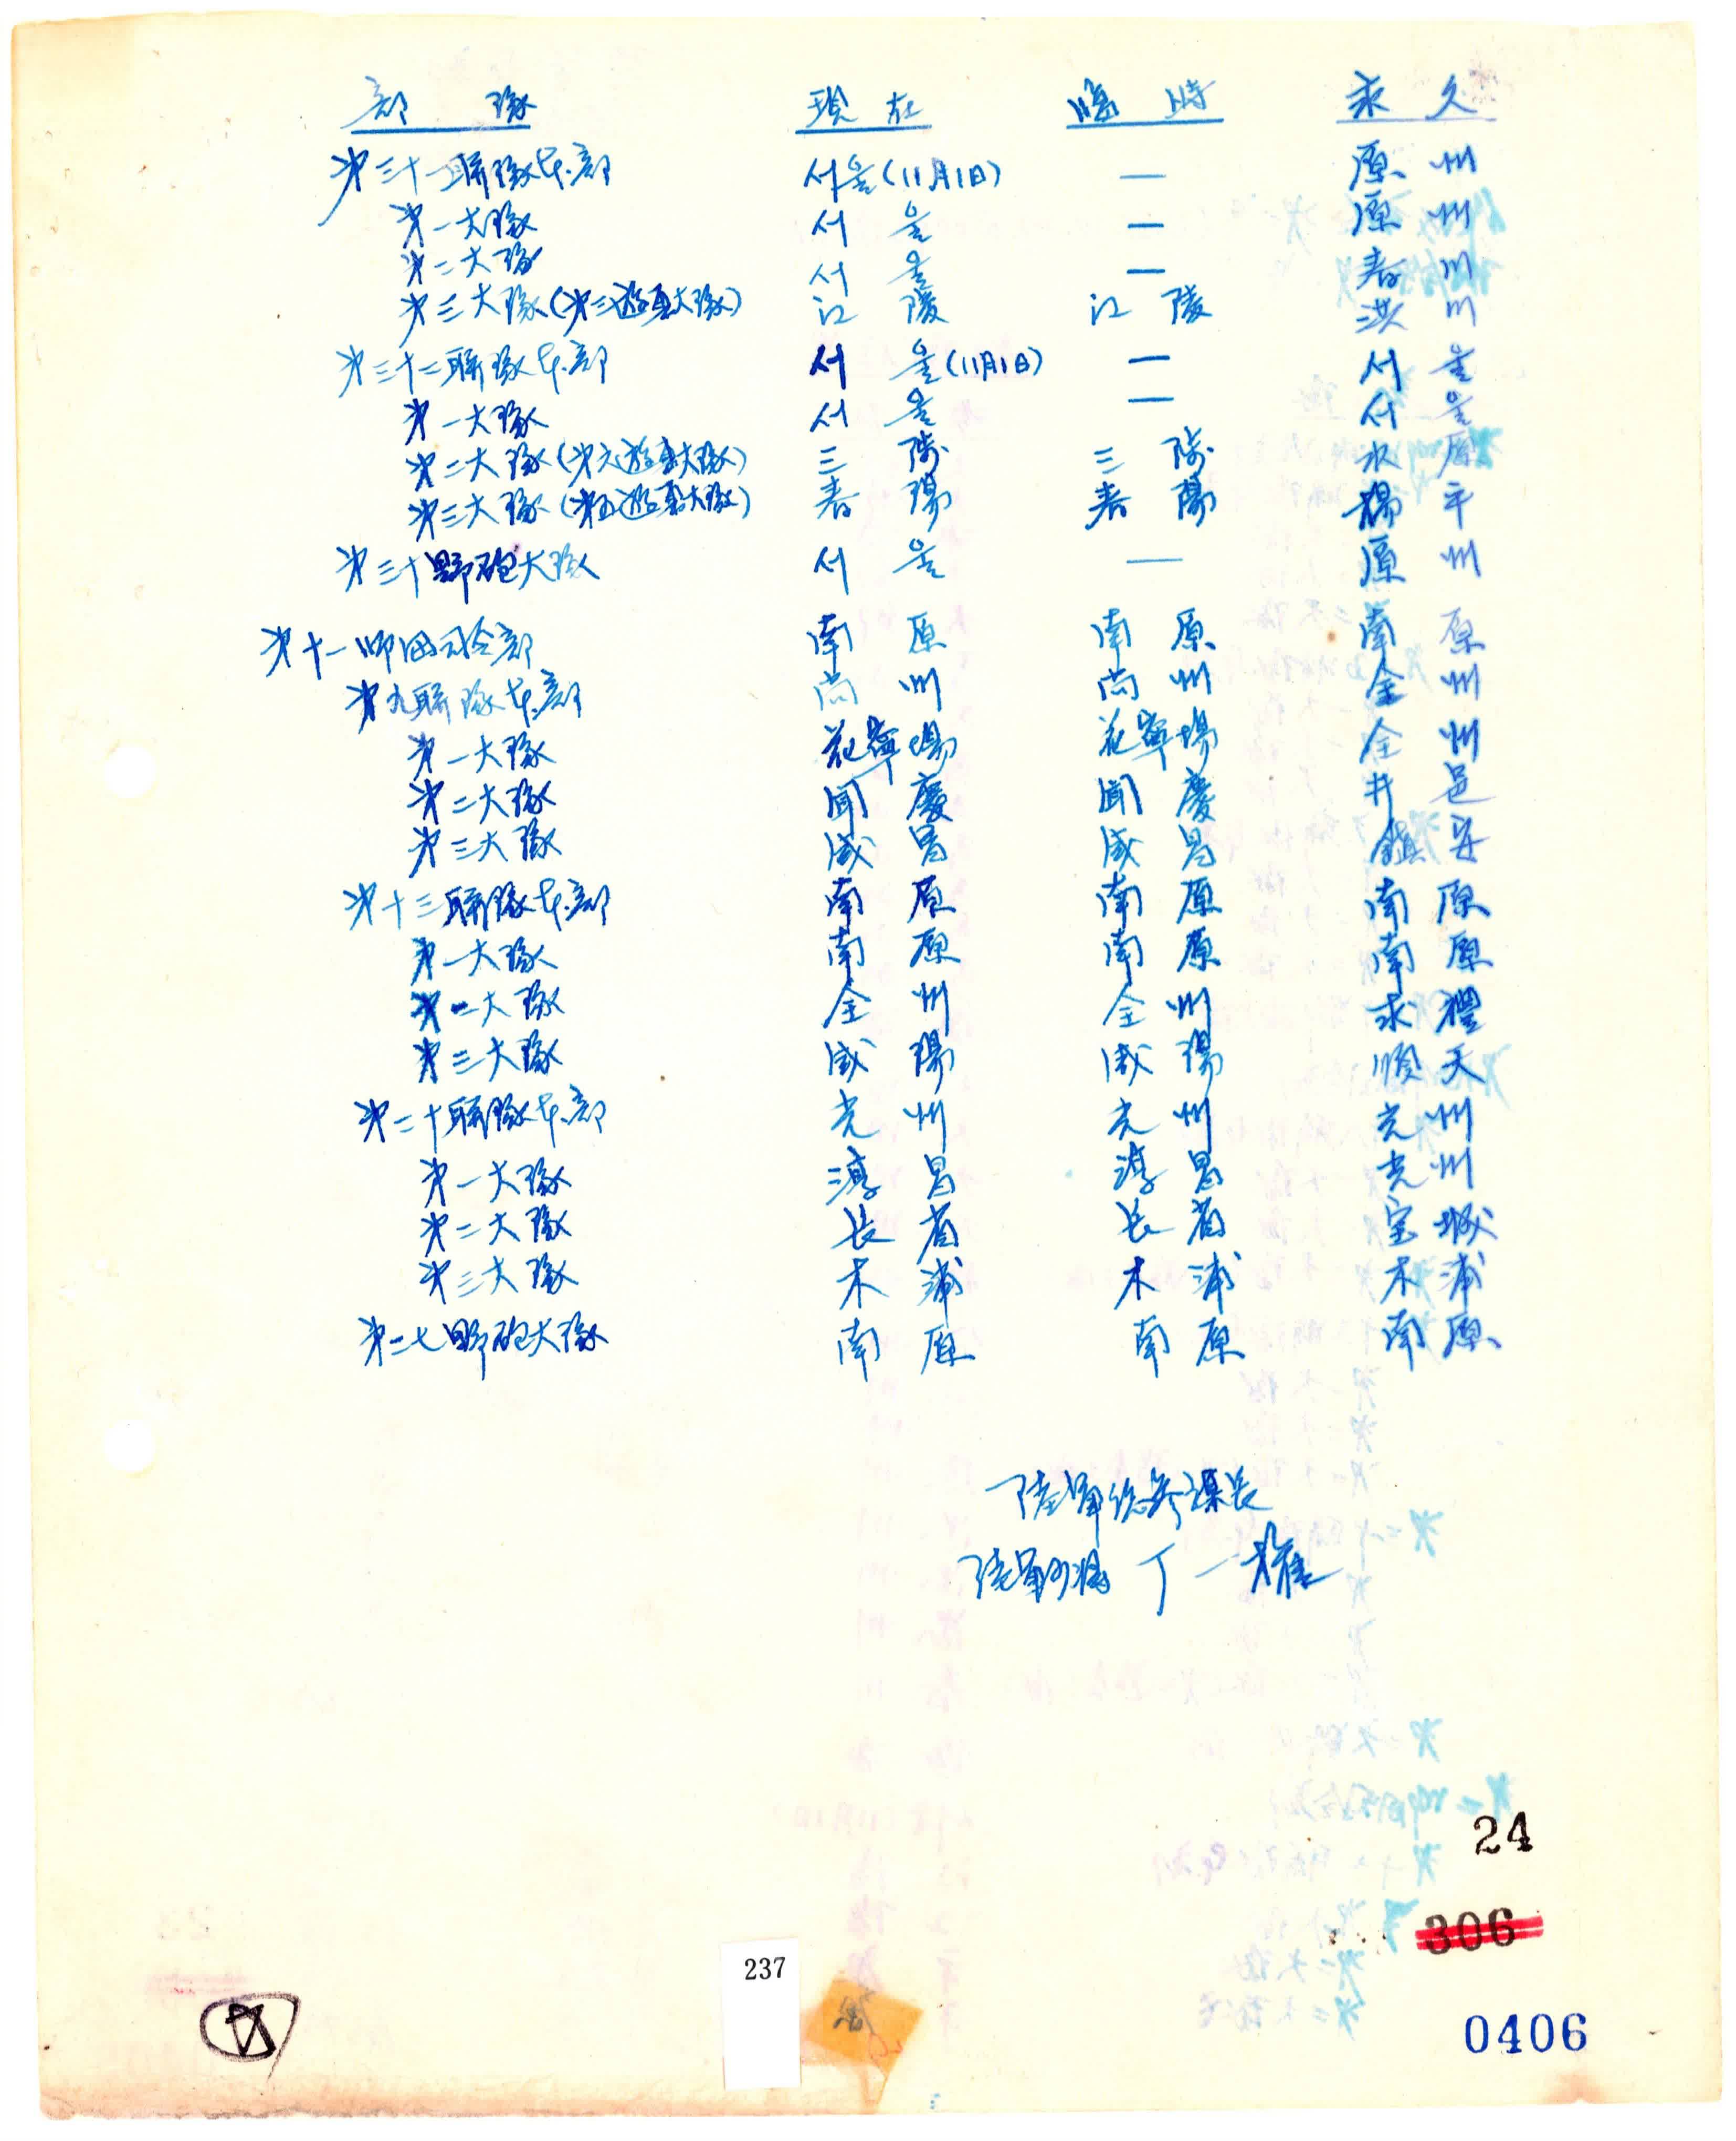 部 隊 現 在 臨 時 永 久
第三十一聯隊本部 서울(11月1日) — 原 州
第一大隊 서 울 — 原 州
第二大隊 서 울 — 春 川
第三大隊(第三遊擊大隊) 江 陵 江 陵 洪 川
第三十二聯隊本部 서 울(11月1日) — 서 울
第一大隊 서 울 — 서 울
第二大隊(第六遊擊大隊) 三 陟 三 陟 水 原
第三大隊(第五遊擊大隊) 春 陽 春 陽 楊 平
第三十野砲大隊 서 울 — 原 州
第十一師團司令部 南 原 南 原 南 原
第九聯隊本部 尚 州 尚 州 全 州
第一大隊 花寧場 花寧場 全 州
第二大隊 聞 慶 聞 慶 井 邑
第三大隊 咸 昌 咸 昌 鎮 安
第十三聯隊本部 南 原 南 原 南 原
第一大隊 南 原 南 原 南 原
第二大隊 全 州 全 州 求 禮
第三大隊 咸 陽 咸 陽 順 天
第二十聯隊本部 光 州 光 州 光 州
第一大隊 淳 昌 淳 昌 光 州
第二大隊 長 省 長 省 宝 城
第三大隊 木 浦 木 浦 木 浦
第二七野砲大隊 南 原 南 原 南 原
陸軍総参謀長
陸軍少將 丁一權
24
306
237
0406